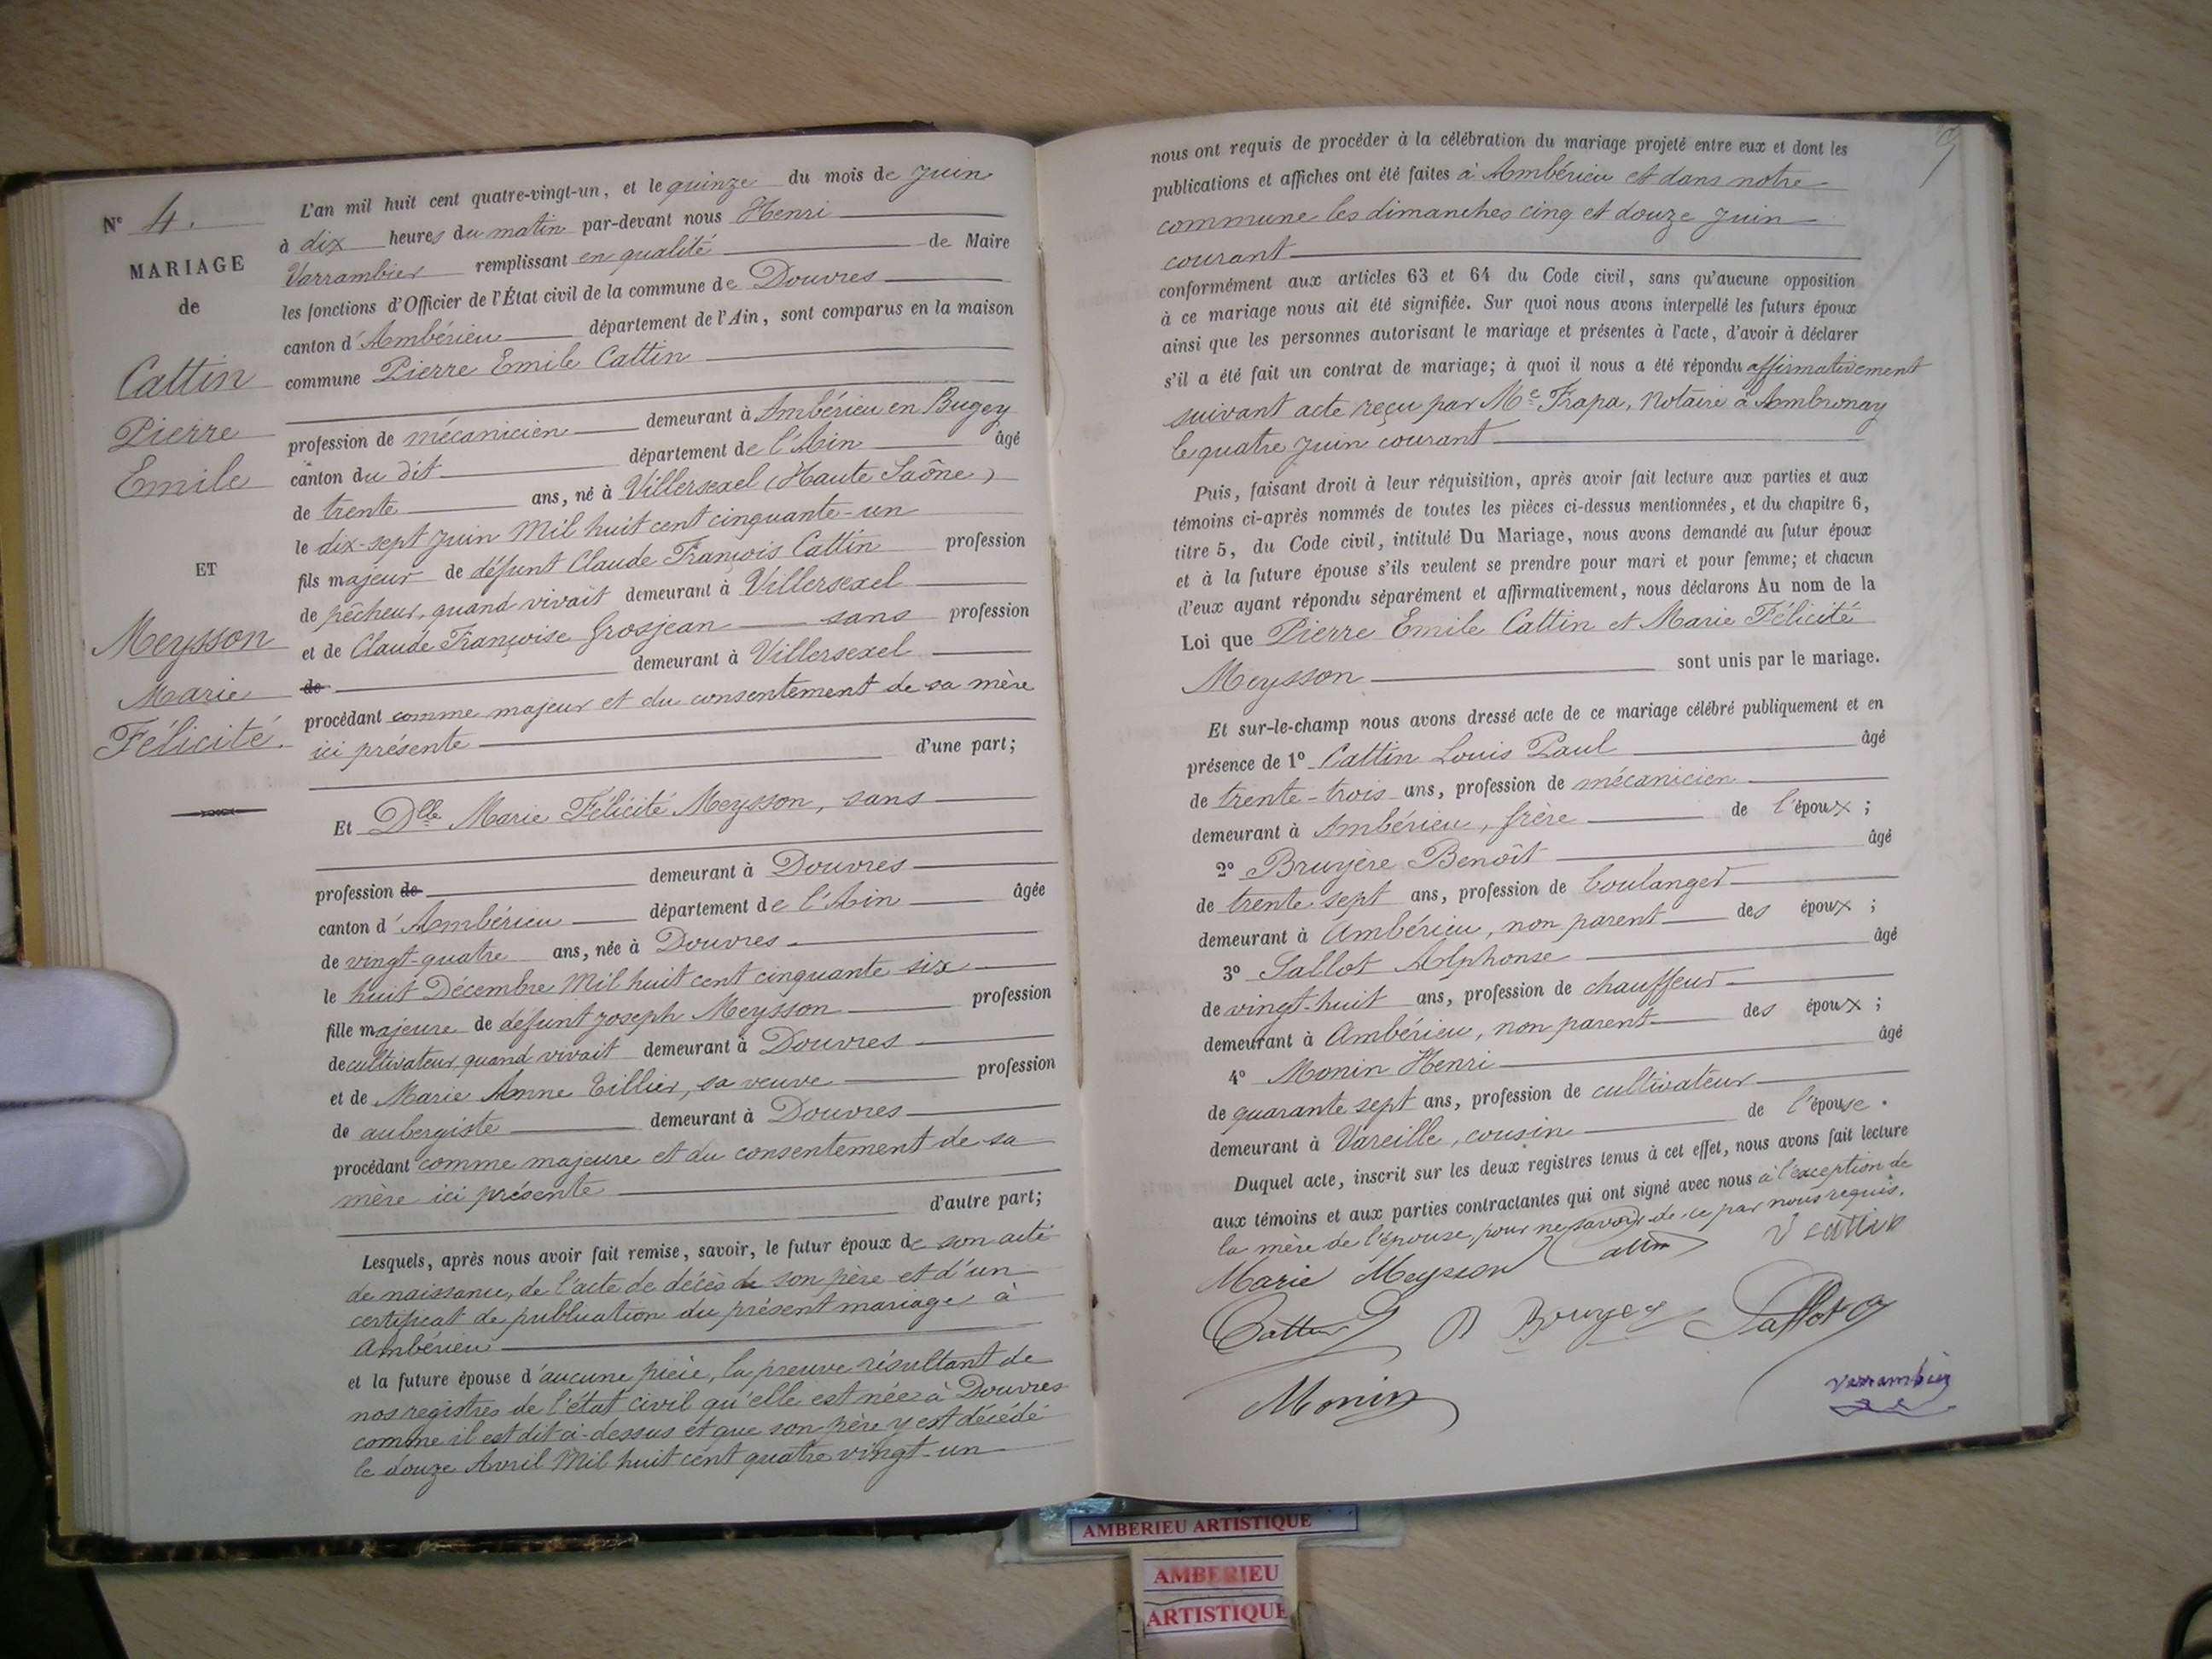 N° 4.
MARIAGE
de
Cattin
Pierre
Emile
ET
Meysson
Marie
Félicité.
L'an mil huit cent quatre-vingt-un, et le quinze du mois de Juin
à dix heures du matin par-devant nous Henri
Varrambier remplissant en qualité de Maire
les fonctions d'Officier de l'État civil de la commune de Douvres
canton d'Ambérieu département de l'Ain, sont comparus en la maison
commune Pierre Emile Cattin
profession de mécanicien demeurant à Ambérieu en Bugey
canton du dit département de l'Ain âgé
de trente ans, né à Villersexel (Haute Saône)
le dix-sept Juin Mil huit cent cinquante-un
fils majeur de défunt Claude François Cattin profession
de pêcheur, quand vivait demeurant à Villersexel
et de Claude Françoise Grosjean sans profession
de demeurant à Villersexel
procédant comme majeur et du consentement de sa mère
ici présente d'une part;
Et Dlle Marie Félicité Meysson, sans
profession de demeurant à Douvres
canton d'Ambérieu département de l'Ain âgée
de vingt-quatre ans, née à Douvres
le huit Décembre Mil huit cent cinquante six
fille majeure de défunt Joseph Meysson profession
de cultivateur quand vivait demeurant à Douvres
et de Marie Anne Tillier, sa veuve profession
de aubergiste demeurant à Douvres
procédant comme majeure et du consentement de sa
mère ici présente d'autre part;
Lesquels, après nous avoir fait remise, savoir, le futur époux de son acte
de naissance, de l'acte de décès de son père et d'un
certificat de publication du présent mariage à
Ambérieu
et la future épouse d'aucune pièce, la preuve résultant de
nos registres de l'état civil qu'elle est née à Douvres
comme il est dit ci-dessus et que son père y est décédé
le douze Avril Mil huit cent quatre vingt-un
9
nous ont requis de procéder à la célébration du mariage projeté entre eux et dont les
publications et affiches ont été faites à Ambérieu et dans notre
commune les dimanches cinq et douze Juin
courant
conformément aux articles 63 et 64 du Code civil, sans qu'aucune opposition
à ce mariage nous ait été signifiée. Sur quoi nous avons interpellé les futurs époux
ainsi que les personnes autorisant le mariage et présentes à l'acte, d'avoir à déclarer
s'il a été fait un contrat de mariage; à quoi il nous a été répondu affirmativement
suivant acte reçu par Me Frapa, Notaire à Ambronay
le quatre Juin courant
Puis, faisant droit à leur réquisition, après avoir fait lecture aux parties et aux
témoins ci-après nommés de toutes les pièces ci-dessus mentionnées, et du chapitre 6,
titre 5, du Code civil, intitulé Du Mariage, nous avons demandé au futur époux
et à la future épouse s'ils veulent se prendre pour mari et pour femme; et chacun
d'eux ayant répondu séparément et affirmativement, nous déclarons Au nom de la
Loi que Pierre Emile Cattin et Marie Félicité
Meysson sont unis par le mariage.
Et sur-le-champ nous avons dressé acte de ce mariage célébré publiquement et en
présence de 1° Cattin Louis Paul âgé
de trente-trois ans, profession de mécanicien
demeurant à Ambérieu, frère de l'époux;
2° Bruyère Benoît âgé
de trente sept ans, profession de boulanger
demeurant à Ambérieu, non parent des époux;
3° Sallot Alphonse âgé
de vingt-huit ans, profession de chauffeur
demeurant à Ambérieu, non parent des époux;
4° Monin Henri âgé
de quarante sept ans, profession de cultivateur
demeurant à Vareille, cousin de l'épouse.
Duquel acte, inscrit sur les deux registres tenus à cet effet, nous avons fait lecture
aux témoins et aux parties contractantes qui ont signé avec nous à l'exception de
la mère de l'épouse, pour ne savoir de ce par nous requis.
Marie Meysson Cattin
Cattin B Bruyer Sallot a
Monin
Varrambier
AMBERIEU ARTISTIQUE
AMBERIEU
ARTISTIQUE